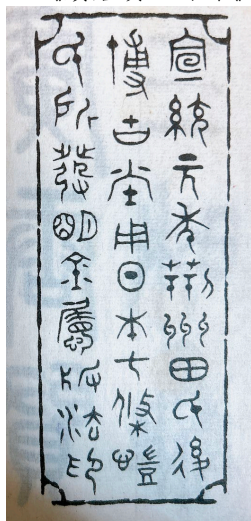 宣統元年荊州田氏後
博古堂用日本七條愷
氏所發明金屬版法印